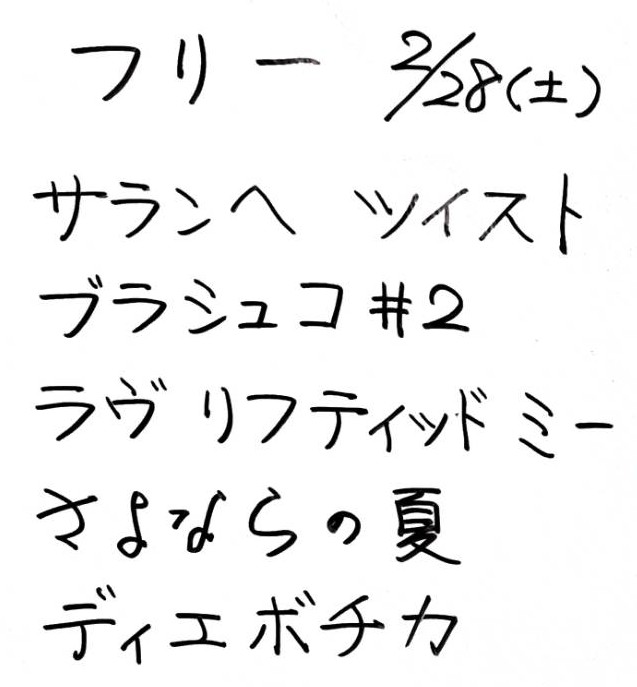 フリー 2/28(土)
サランヘ ツイスト
ブラジュコ #2
ラヴ リフティッド ミー
さよならの夏
ディエボチカ